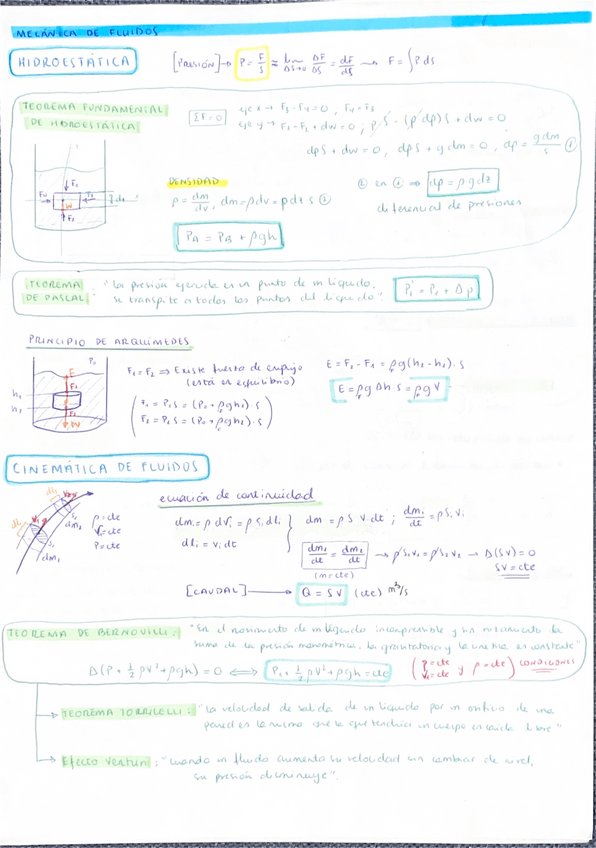 MECÁNICA DE FLUIDOS
HIDROESTÁTICA
[PRESIÓN] → P = F/S ≈ lim ΔS→0 ΔF/ΔS = dF/dS → F = ∫ P ds
TEOREMA FUNDAMENTAL DE HIDROESTÁTICA
ΣF = 0
eje x → F3 - F4 = 0, F4 = F3
eje y → F1 - F2 + dw = 0, pS - (p+dp)S + dw = 0
dpS + dw = 0, dpS + g dm = 0, dp = g dm/S ①
DENSIDAD
ρ = dm/dv, dm = ρ dv = ρ dz S ②
② en ① ⇒ dp = ρ g dz
diferencial de presiones
PA = PB + ρgh
TEOREMA DE PASCAL: "La presión ejercida en un punto de un líquido,
se transmite a todos los puntos del líquido"
P1' = P1 + Δp
PRINCIPIO DE ARQUÍMEDES
F1 = F2 ⇒ Existe fuerza de empuje
(está en equilibrio)
E = F2 - F1 = ρg(h2 - h1)·S
F1 = P1 S = (P0 + ρgh1)·S
F2 = P2 S = (P0 + ρgh2)·S
E = ρg Δh S = ρg V
CINEMÁTICA DE FLUIDOS
ecuación de continuidad
ρ = cte
P = cte
dm1 = ρ dV1 = ρ S1 dl1
dl1 = v1 dt
dm = ρ S V·dt ; dm1/dt = ρ S1 V1
dm1/dt = dm2/dt → ρS1V1 = ρS2V2 → Δ(SV) = 0
(m = cte)
SV = cte
[CAUDAL] → Q = SV (cte) m³/s
TEOREMA DE BERNOUILLI: "En el movimiento de un líquido incompresible y sin rozamiento la
suma de la presión manométrica, la gravitatoria y la cinética es constante"
Δ(P + ½ρV² + ρgh) = 0 ⟺ P1 + ½ρV² + ρgh = cte
y ρ = cte) CONDICIONES
TEOREMA TORRICELLI: "La velocidad de salida de un líquido por un orificio de una
pared es la misma que la que tendría un cuerpo en caída libre"
Efecto Venturi: "Cuando un fluido aumenta su velocidad sin cambiar de nivel,
su presión disminuye".